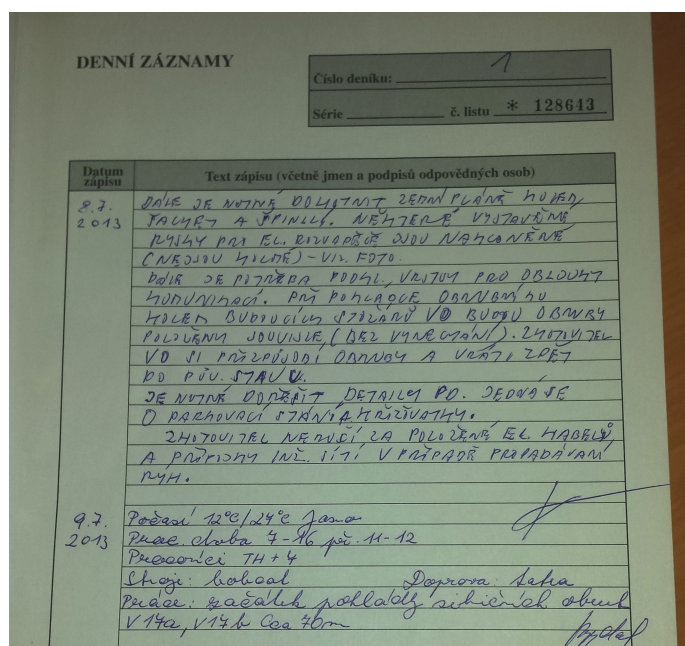 DENNÍ ZÁZNAMY
Číslo deníku: 1
Série č. listu * 128643
Datum zápisu
Text zápisu (včetně jmen a podpisů odpovědných osob)
8.7. 2013
DÁLE JE NUTNÉ DOHUTNIT ZEMNÍ PLÁNĚ KOLEM
ŠACHET A ŠPINLLŮ. NĚKTERÉ VYSTAVĚNÉ
PRO EL. ROZVADĚČE JSOU NAKLONĚNÉ
(NEJSOU KOLMÉ) - VIZ. FOTO.
DÁLE JE POTŘEBA PODKL. VRSTVY PRO OBLOUKY
KOMUNIKACÍ. PŘI POKLÁDCE OBRUBNÍKU
KOLEM BUDOUCÍCH STOŽÁRŮ VO BUDOU OBRUBY
POLOŽENY SOUVISLE, (BEZ VYNECHÁNÍ). ZHOTOVITEL
VO SI PŘIZPŮSOBÍ OBRUBY A VRÁTÍ ZPĚT
DO PŮV. STAVU.
JE NUTNÉ DOŘEŠIT DETAILY PD. JEDNÁ SE
O PARKOVACÍ STÁNÍ A KŘIŽOVATKY.
ZHOTOVITEL NERUČÍ ZA POLOŽENÉ EL. KABELY,
A PŘÍPOJKY INŽ. SÍTÍ V PŘÍPADĚ PROPADÁVANÍ
RÝH.
9.7. 2013
Počasí 12°C/24°C Jasno
Prac. doba 7-16 př. 11-12
Pracovníci TH + 4
Stroje: bobcat Doprava: tatra
Práce: začátek pokládky silničních obrub
V17a, V17b Cca 70m